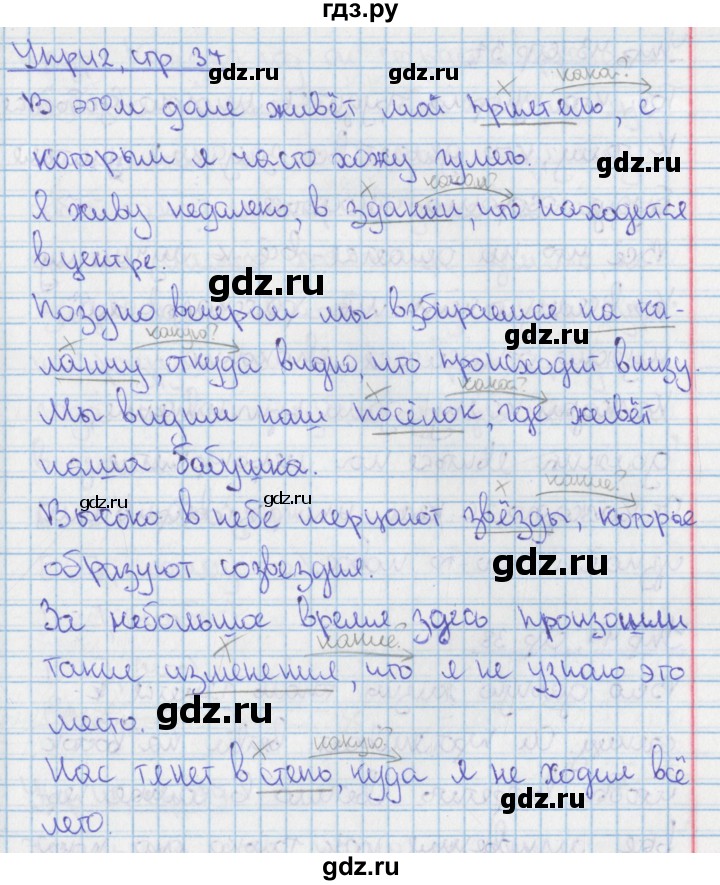 гдз.ру
Упр 12, стр 37
gdz.ru
какой?
В этом доме живёт мой приятель, с
gdz.ru
которым я часто хожу гулять.
gdz.ru
каком?
Я живу недалеко, в здании, что находится
в центре.
gdz.ru
Поздно вечером мы взбираемся на ка-
gdz.ru
какую?
ланчу, откуда видно, что происходит внизу.
какой?
Мы видим наш посёлок, где живёт
gdz.ru
наша бабушка.
gdz.ru
gdz.ru
какие?
Высоко в небе мерцают звёзды, которые
gdz.ru
образуют созвездия.
За небольшое время здесь произошли
какие?
такие изменения, что я не узнаю это
место.
gdz.ru
какую?
Нас тянет в степь, куда я не ходил всё
gdz.ru
лето.
gdz.ru